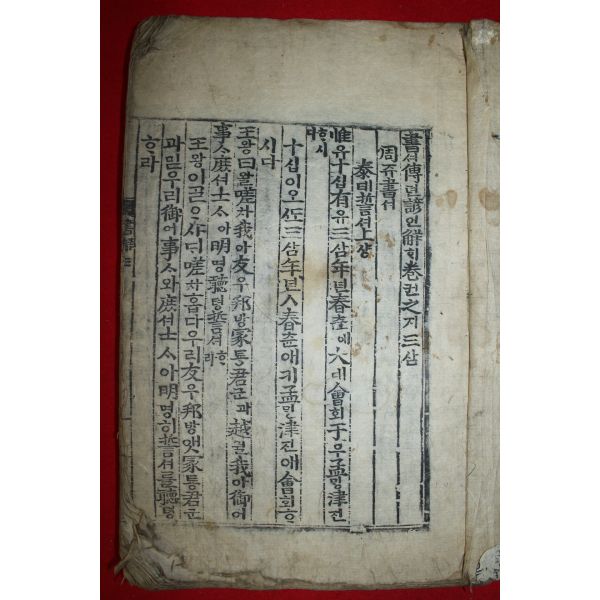 書셔傳뎐諺언解ᄒᆡ卷권之지三삼
周쥬書셔
泰태誓셔上샹
惟유十십有유三삼年년春츈애大대會회于우孟ᄆᆡᆼ津진
ᄒᆞ시다
十십이오ᄯᅩ三삼年년ㅅ春츈애키孟ᄆᆡᆼ津진애會회ᄒᆞ
시다
王왕曰왈嗟차我아友우邦방冢툥君군과越월我아御어
事ᄉᆞ庶셔士ᄉᆞ아明명聽텽誓셔ᄒᆞ라
王왕이ᄀᆞᆯᄋᆞ샤ᄃᆡ嗟차홉다우리友우邦방앳冢툥君군
과믿우리御어事ᄉᆞ와庶셔士ᄉᆞ아明명히誓셔를聽텽
ᄒᆞ라